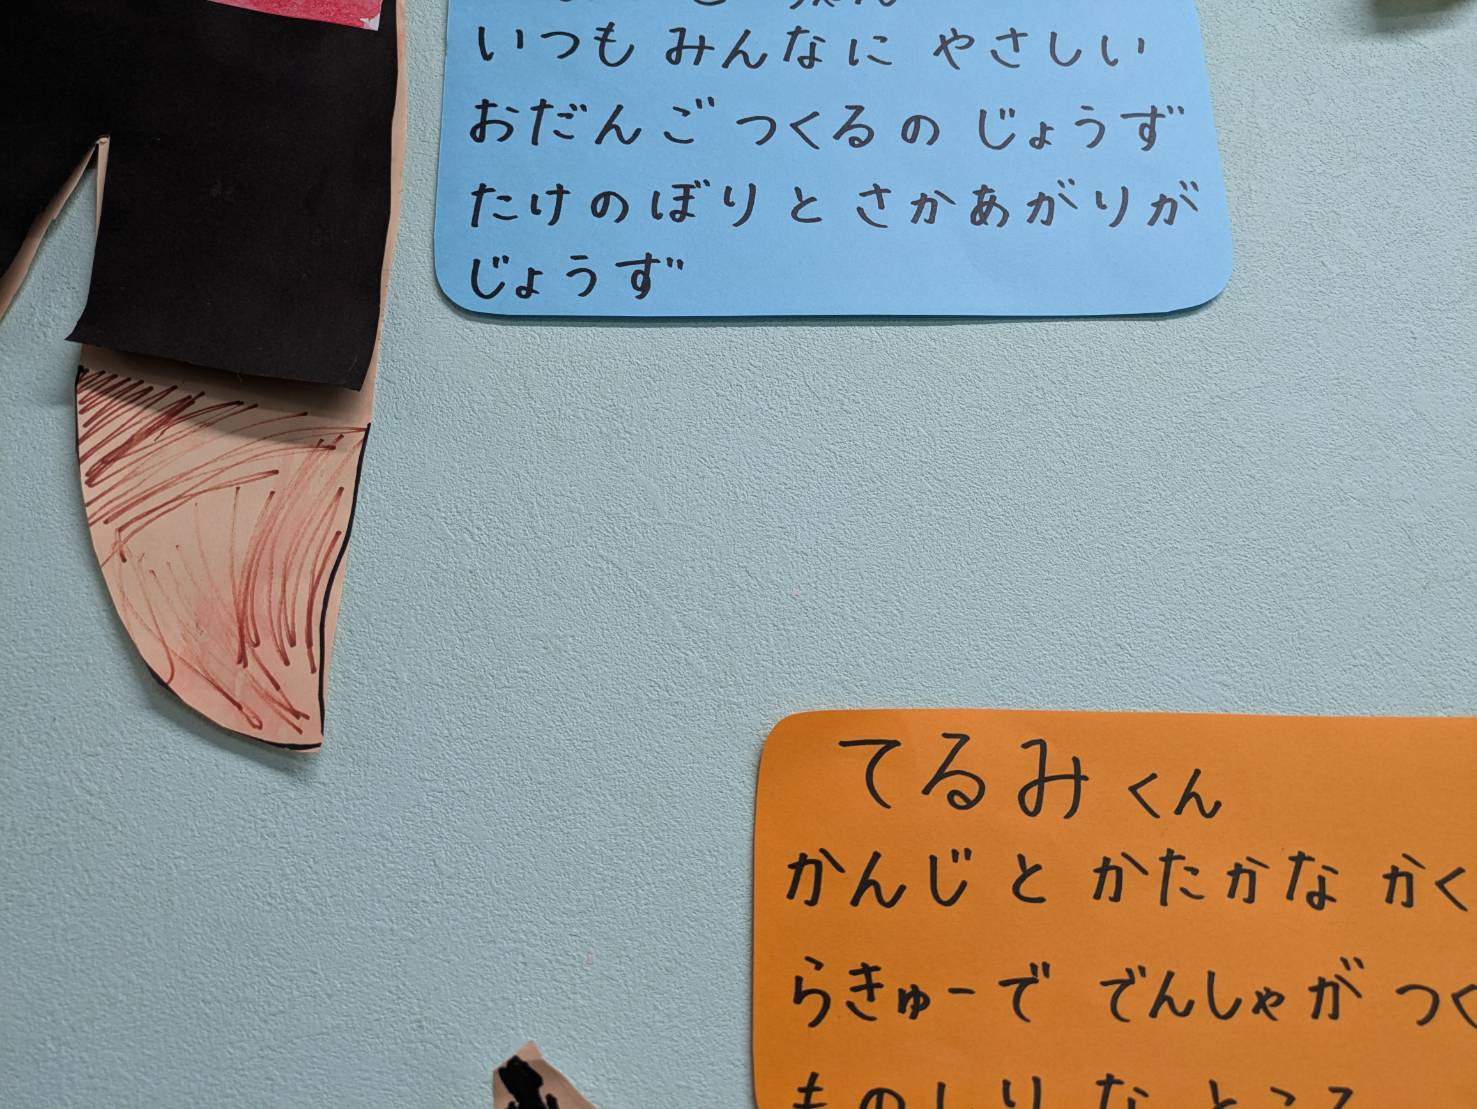 いつも みんなに やさしい
おだんご つくるの じょうず
たけのぼりと さかあがりが
じょうず
てるみくん
かんじと かたかな かく
らきゅーで でんしゃが つく
ものしりな ところ